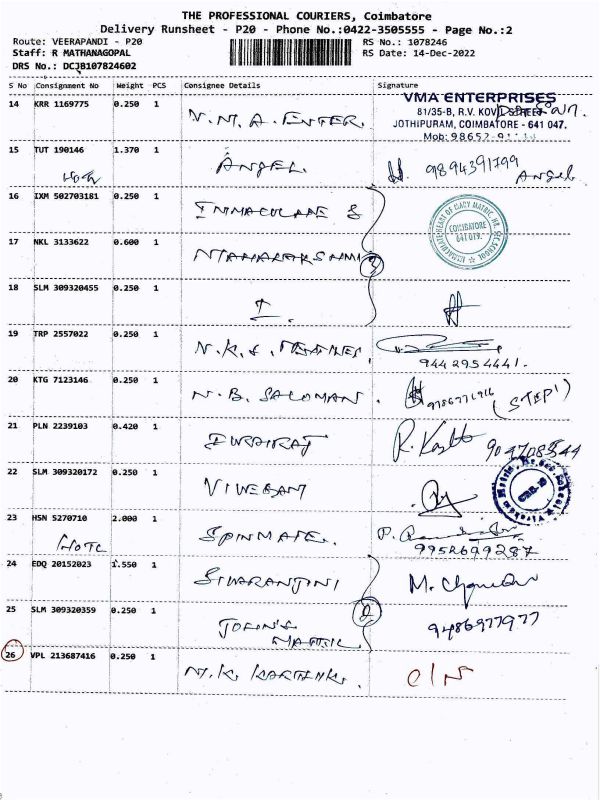 THE PROFESSIONAL COURIERS, Coimbatore
Delivery Runsheet - P20 - Phone No.:0422-3505555 - Page No.:2
Route: VEERAPANDI - P20
Staff: R MATHANAGOPAL
DRS No.: DCJB107824602
RS No.: 1078246
RS Date: 14-Dec-2022
S No Consignment No Weight PCS Consignee Details Signature
14 KRR 1169775 0.250 1 N.M.A. ENTER.
VMA ENTERPRISES
81/35-B, R.V. KOVIL STREET
JOTHIPURAM, COIMBATORE - 641 047.
Mob: 98652
15 TUT 190146 1.370 1 ANGEL. 9894391799
Angel
16 IXM 502703181 0.250 1 IMMACULATE &
COIMBATORE
641 019.
17 NKL 3133622 0.600 1
18 SLM 309320455 0.250 1 I.
19 TRP 2557022 0.250 1 N.K.S.
9442954441.
20 KTG 7123146 0.250 1 N.B. SALOMAN. (STEP1)
21 PLN 2239103 0.420 1 DURAIRAJ
22 SLM 309320172 0.250 1
23 HSN 5270710 2.000 1 SPINMATE.
9952699287
24 EDQ 20152023 1.550 1 SIVARANJINI M.
25 SLM 309320359 0.250 1 JOHN'S
MATRIC. 9486977977
26 VPL 213687416 0.250 1 M.K. KARTHIK. C/N